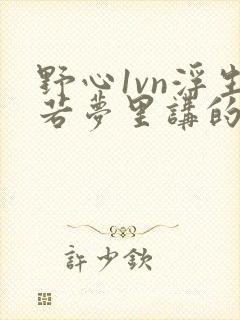 野心1vn浮生
若夢里講的
許少欽